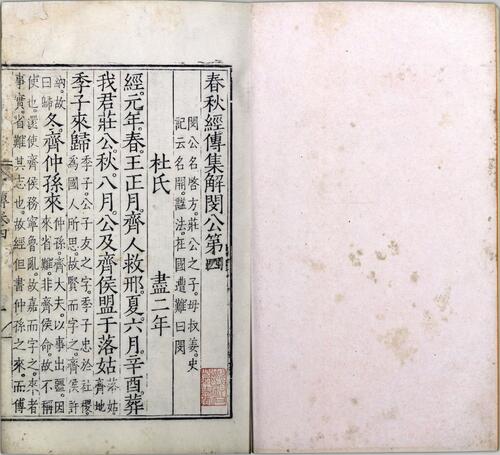 春秋經傳集解閔公第四
閔公名啓方莊公之子母叔姜史
記云名開謚法在國遭難曰閔
杜氏 盡二年
經元年春王正月齊人救邢夏六月辛酉葬
我君莊公秋八月公及齊侯盟于落姑落姑齊地
季子來歸季子公子友之字季子忠於社稷為國人所思故賢而字之齊侯許
納故曰歸冬齊仲孫來仲孫齊大夫以事出疆因來省難非齊侯命故不稱
使也還使齊侯務寧魯亂故嘉而字之來者
事實省難其志也故經但書仲孫之來而傳